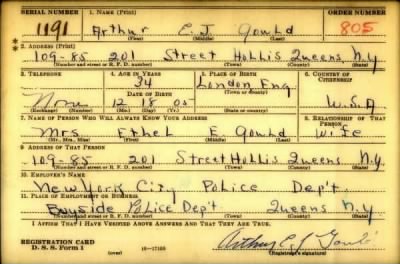 SERIAL NUMBER 1. NAME (Print) ORDER NUMBER
1191 Arthur E. J. Gould 805
(First) (Middle) (Last)
2. ADDRESS (Print)
109-85 201 Street Hollis Queens N.Y
(Number and street or R. F. D. number) (Town) (County) (State)
3. TELEPHONE 4. AGE IN YEARS 5. PLACE OF BIRTH 6. COUNTRY OF CITIZENSHIP
34
None DATE OF BIRTH London Eng U.S.A
12 18 05
(Exchange) (Number) (Mo.) (Day) (Yr.) (State or country)
7. NAME OF PERSON WHO WILL ALWAYS KNOW YOUR ADDRESS 8. RELATIONSHIP OF THAT PERSON
Mrs Ethel E Gould Wife
(Mr., Mrs., Miss) (First) (Middle) (Last)
9. ADDRESS OF THAT PERSON
109-85 201 Street Hollis Queens N.Y.
(Number and street or R. F. D. number) (Town) (County) (State)
10. EMPLOYER'S NAME
New York City Police Dep't.
11. PLACE OF EMPLOYMENT OR BUSINESS
Bayside Police Dep't Queens N.Y.
(Number and street or R. F. D. number) (Town) (County) (State)
I AFFIRM THAT I HAVE VERIFIED ABOVE ANSWERS AND THAT THEY ARE TRUE.
REGISTRATION CARD
D. S. S. Form 1 (over) 16—17105 Arthur E. J. Gould
(Registrant's signature)